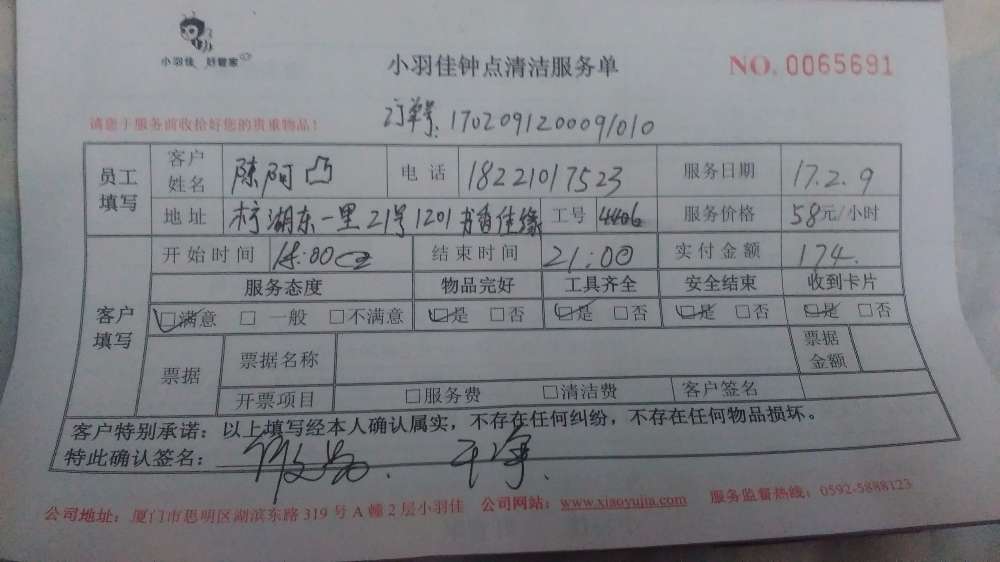 小羽佳 好管家
小羽佳钟点清洁服务单
NO. 0065691
请您于服务前收拾好您的贵重物品！
订单号：17020912000911010
员工填写
客户姓名 陈阿凸 电话 18221017523 服务日期 17.2.9
地址 湖东一里21号1201书香佳缘 工号 4406 服务价格 58元/小时
客户填写
开始时间 18:00 结束时间 21:00 实付金额 174.
服务态度 物品完好 工具齐全 安全结束 收到卡片
☑满意 □ 一般 □不满意 ☑是 □否 ☑是 □否 ☑是 □否 ☑是 □否
票据 票据名称 票据金额
开票项目 □服务费 □清洁费 客户签名
客户特别承诺：以上填写经本人确认属实，不存在任何纠纷，不存在任何物品损坏。
特此确认签名： 干净.
公司地址：厦门市思明区湖滨东路319号A幢2层小羽佳 公司网站：www.xiaoyujia.com 服务监督热线：0592-5888123